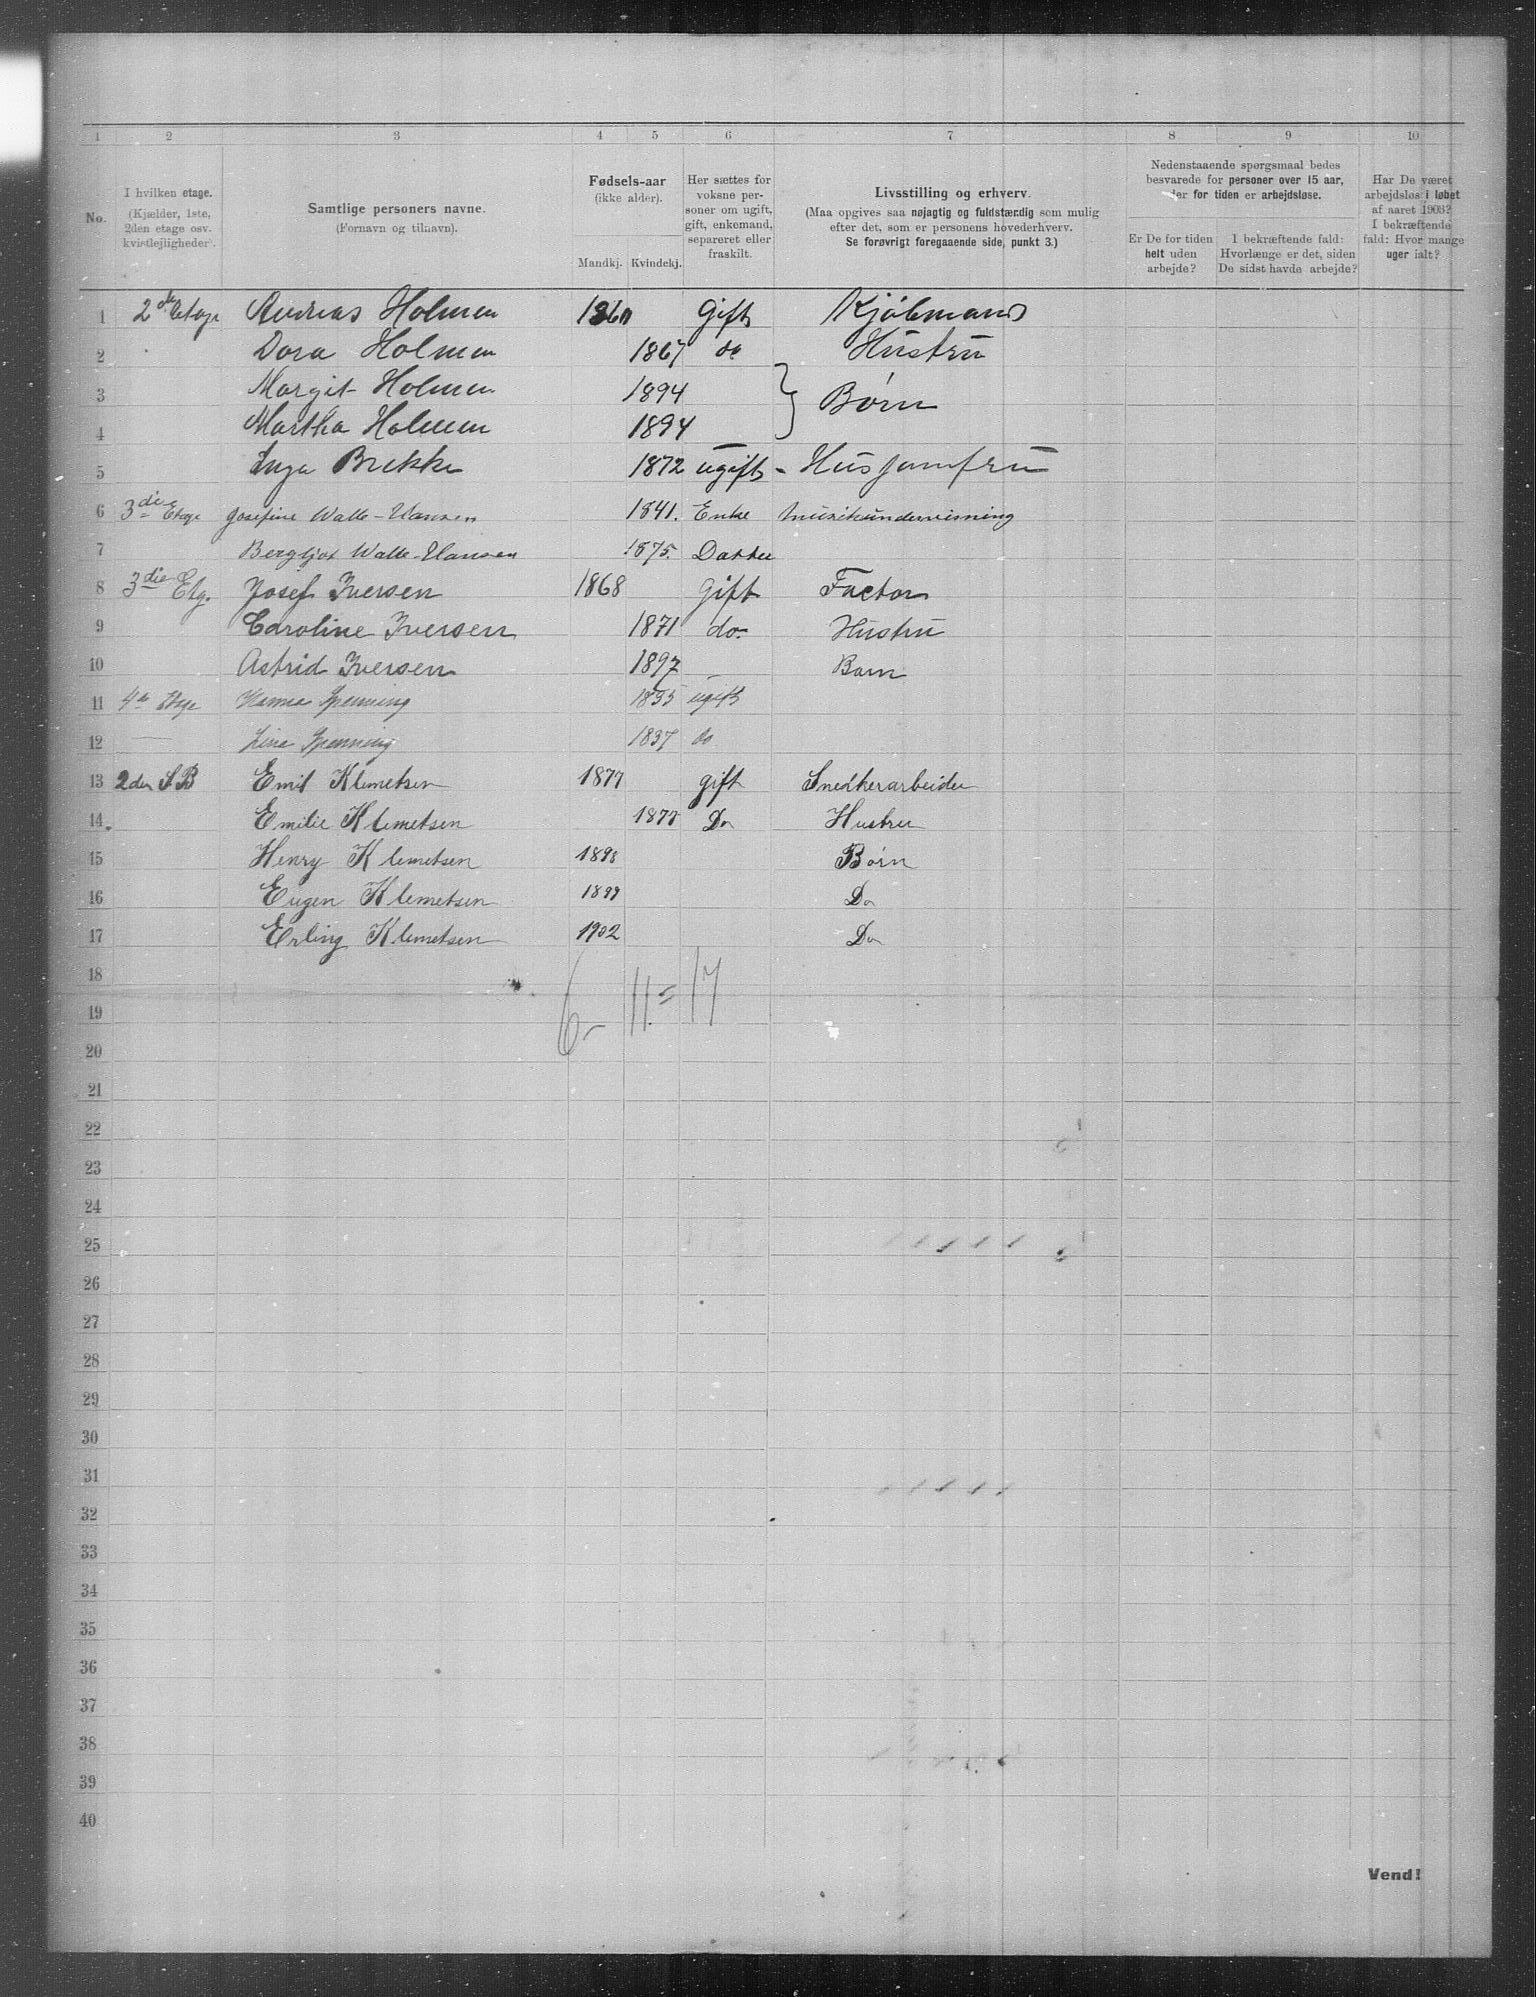 1 2 3 4 5 6 7 8 9 10
No.
I hvilken etage.
(Kjælder, 1ste,
2den etage osv.
kvistlejligheder).
Samtlige personers navne.
(Fornavn og tilnavn).
Fødsels-aar
(ikke alder).
Mandkj. Kvindekj.
Her sættes for
voksne per-
soner om ugift,
gift, enkemand,
separeret eller
fraskilt.
Livsstilling og erhverv.
(Maa opgives saa nøjagtig og fuldstændig som mulig
efter det, som er personens hovederhverv.
Se forøvrigt foregaaende side, punkt 3.)
Nedenstaaende spørgsmaal bedes
besvarede for personer over 15 aar,
der for tiden er arbejdsløse.
Er De for tiden
helt uden
arbejde?
I bekræftende fald:
Hvorlænge er det, siden
De sidst havde arbejde?
Har De været
arbejdsløs i løbet
af aaret 1903?
I bekræftende
fald: Hvor mange
uger ialt?
1 2de Etage Andreas Holmen 1860 Gift Kjøbmand
2 Dora Holmen 1867 do Hustru
3 Margit Holmen 1894 } Børn
4 Martha Holmen 1894
5 Inga Brekke 1872 ugift - Husjomfru
6 3die Etage Josefine Walle-Hansen 1841. Enke Musikundervisning
7 Bergljot Walle-Hansen 1875. Datter
8 3die Etg. Josef Iversen 1868 gift Factor
9 Caroline Iversen 1871 do. Hustru
10 Astrid Iversen 1897 - Barn
11 4de Etage Hanna Spenning 1835 ugift
12 Lina Spenning 1837 do
13 2den S B Emil Klemetsen 1877 gift Snedkerarbeider
14 Emilie Klemetsen 1877 Do Hustru
15 Henry Klemetsen 1898 Børn
16 Eugen Klemetsen 1899 Do
17 Erling Klemetsen 1902 Do
18
6 - 11 = 17
19
20
21
22
23
24
25
26
27
28
29
30
31
32
33
34
35
36
37
38
39
40
Vend!